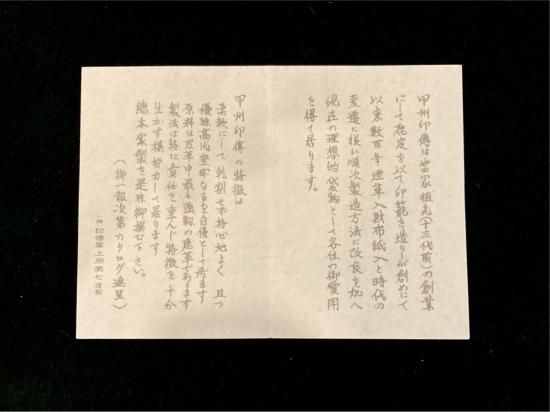 甲州印傳は當家祖先(十三代前)の創業
にして鹿皮を以て印籠を造りしが創めにて
以来数百年煙草入財布紙入と時代の
変遷に従い順次製造方法に改良を加へ
現在の理想的袋物として各位の御愛用
を得て居ります。
甲州印傳の特徴は
柔軟にして乾割せず持心地よく 且つ
優雅高尚堅牢なるを自慢として居ます
原料は皮革中最も強靱の鹿革であります
製法は特に責任を重んじ特徴を十分
生かす様努力して居ります
總本家製を是非御撰む下さい。
(御一報次第カタログ進呈)
印傳屋上原勇七謹製